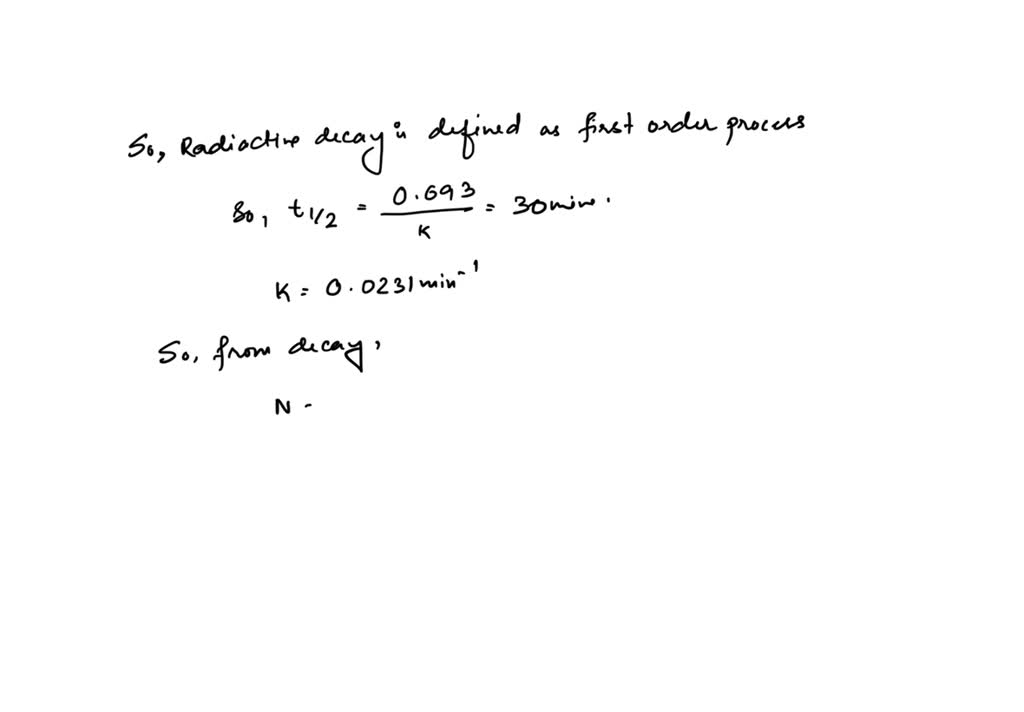 So, Radioctive decay is defined as first order process
So, t1/2 = 0.693/K = 30 min.
K = 0.0231 min⁻¹
So, from decay,
N -